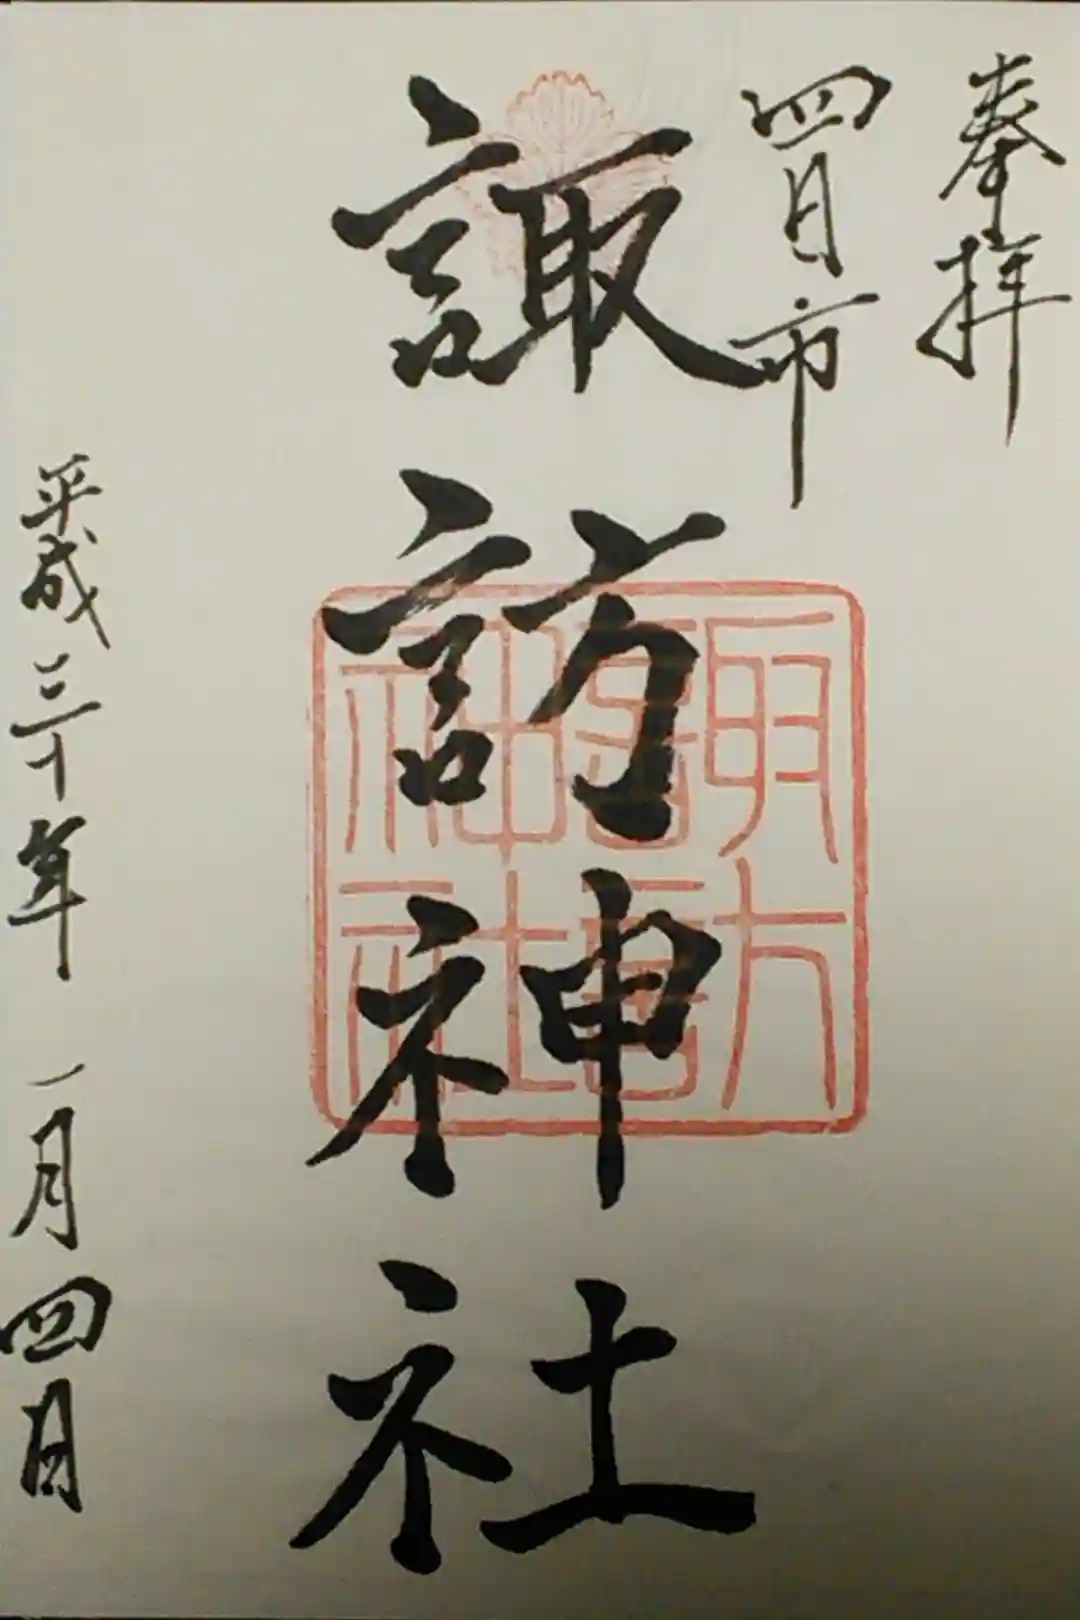 奉拝
四日市
諏訪神社
諏方
神社
平成三十年一月四日